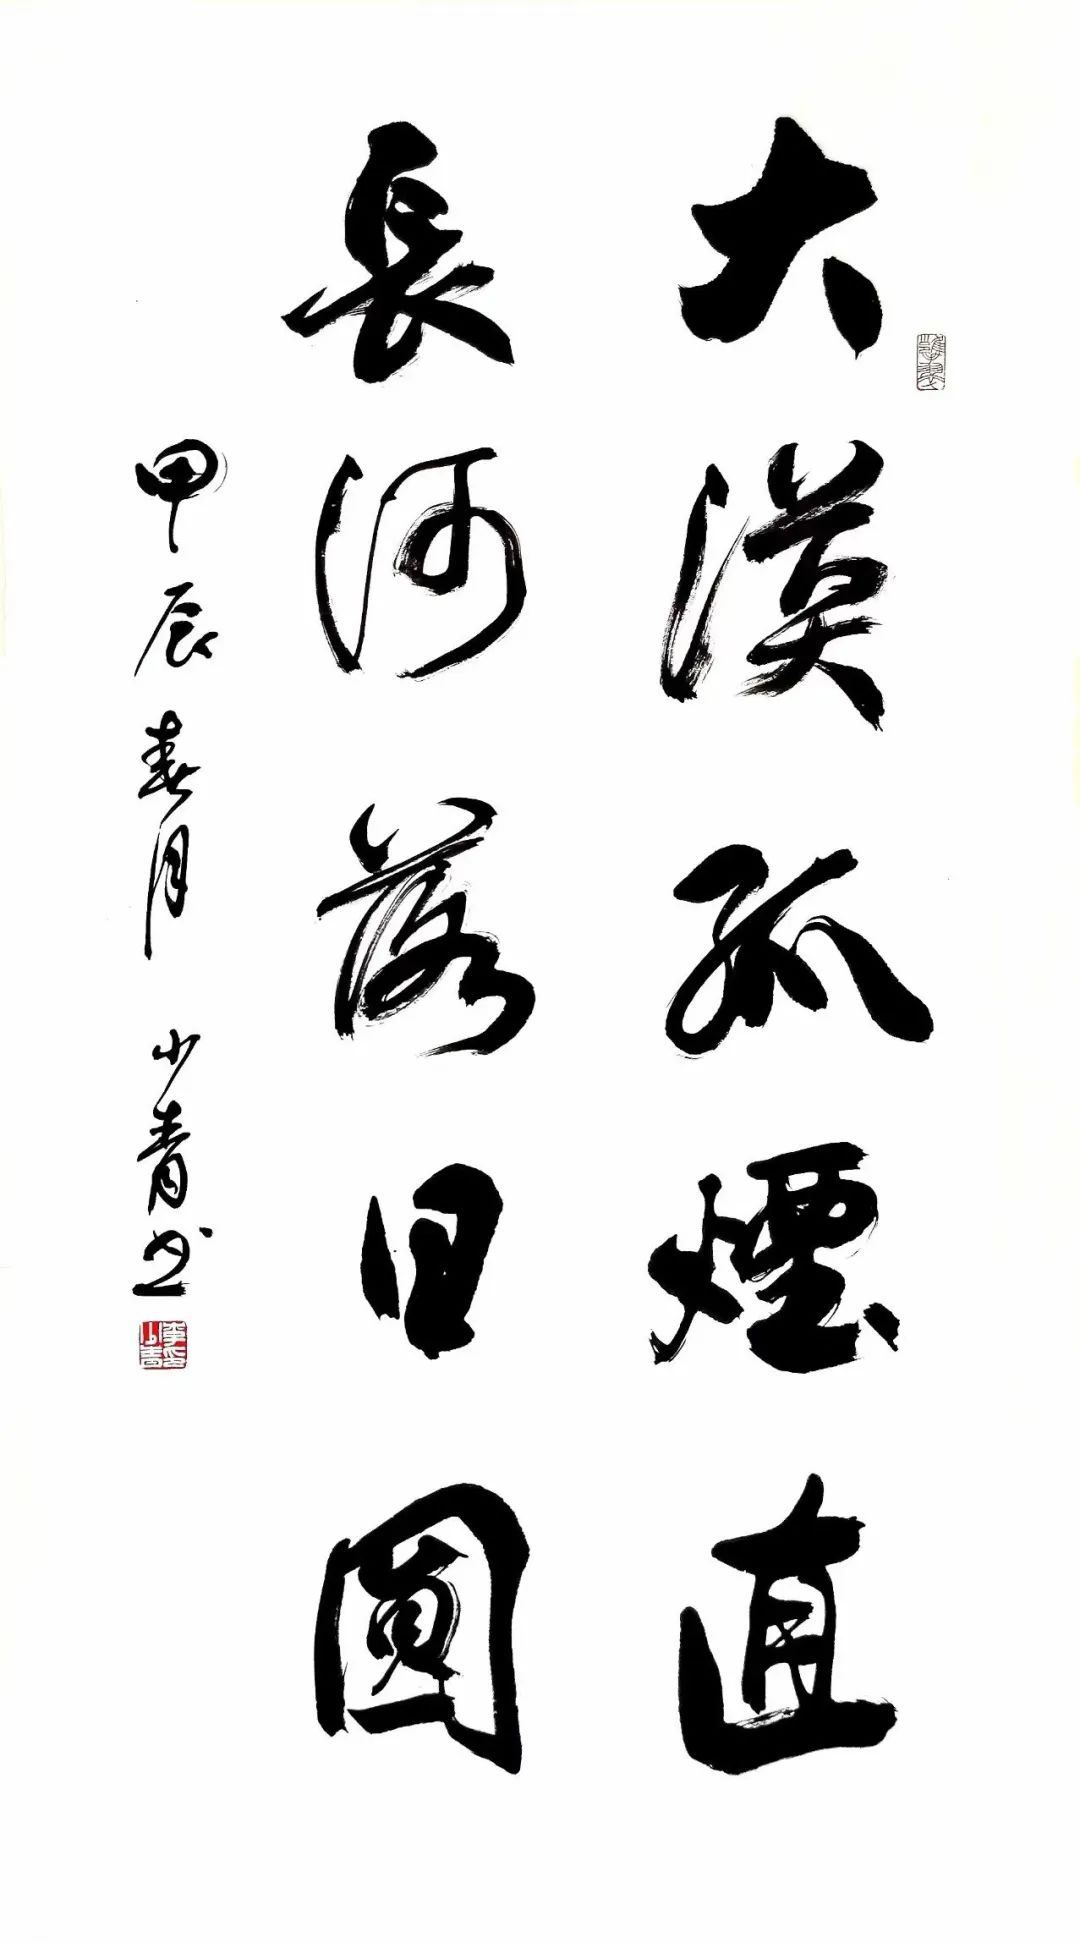 大漠孤煙直
長河落日圓
甲辰春月 少青书